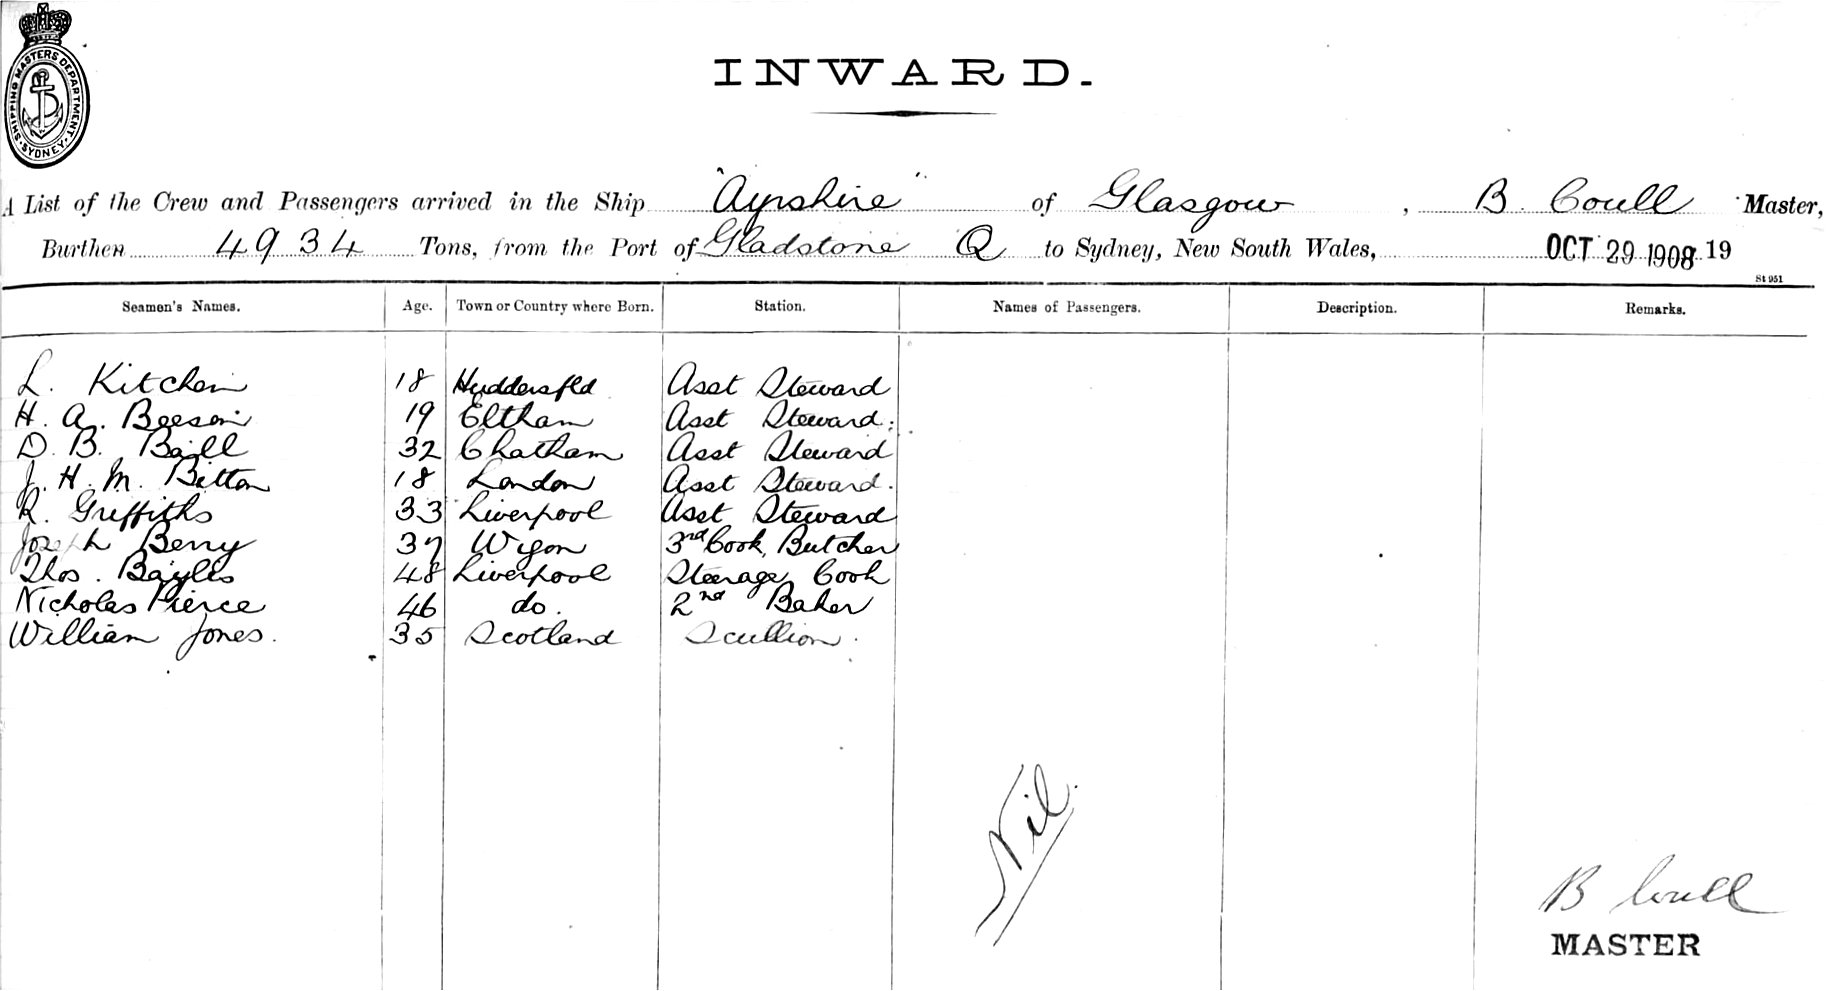 SHIPPING MASTERS DEPARTMENT. SYDNEY.
INWARD.
A List of the Crew and Passengers arrived in the Ship "Ayrshire" of Glasgow, B. Coull Master,
Burthen 4934 Tons, from the Port of Gladstone Q to Sydney, New South Wales, OCT 29 1908 19
St 951
Seamen's Names. Age. Town or Country where Born. Station. Names of Passengers. Description. Remarks.
L. Kitchen 18 Huddersfld Asst Steward
H. A. Beeson 19 Eltham Asst Steward.
D. B. Ball 32 Chatham Asst Steward
J. H. M. Bitton 18 London Asst Steward.
R. Griffiths 33 Liverpool Asst Steward
Joseph Berry 37 Wigan 3rd Cook, Butcher
Thos. Bayles 48 Liverpool Steerage Cook
Nicholas Pierce 46 do. 2nd Baker
William Jones. 35 Scotland Scullion.
Nil.
B Coull
MASTER